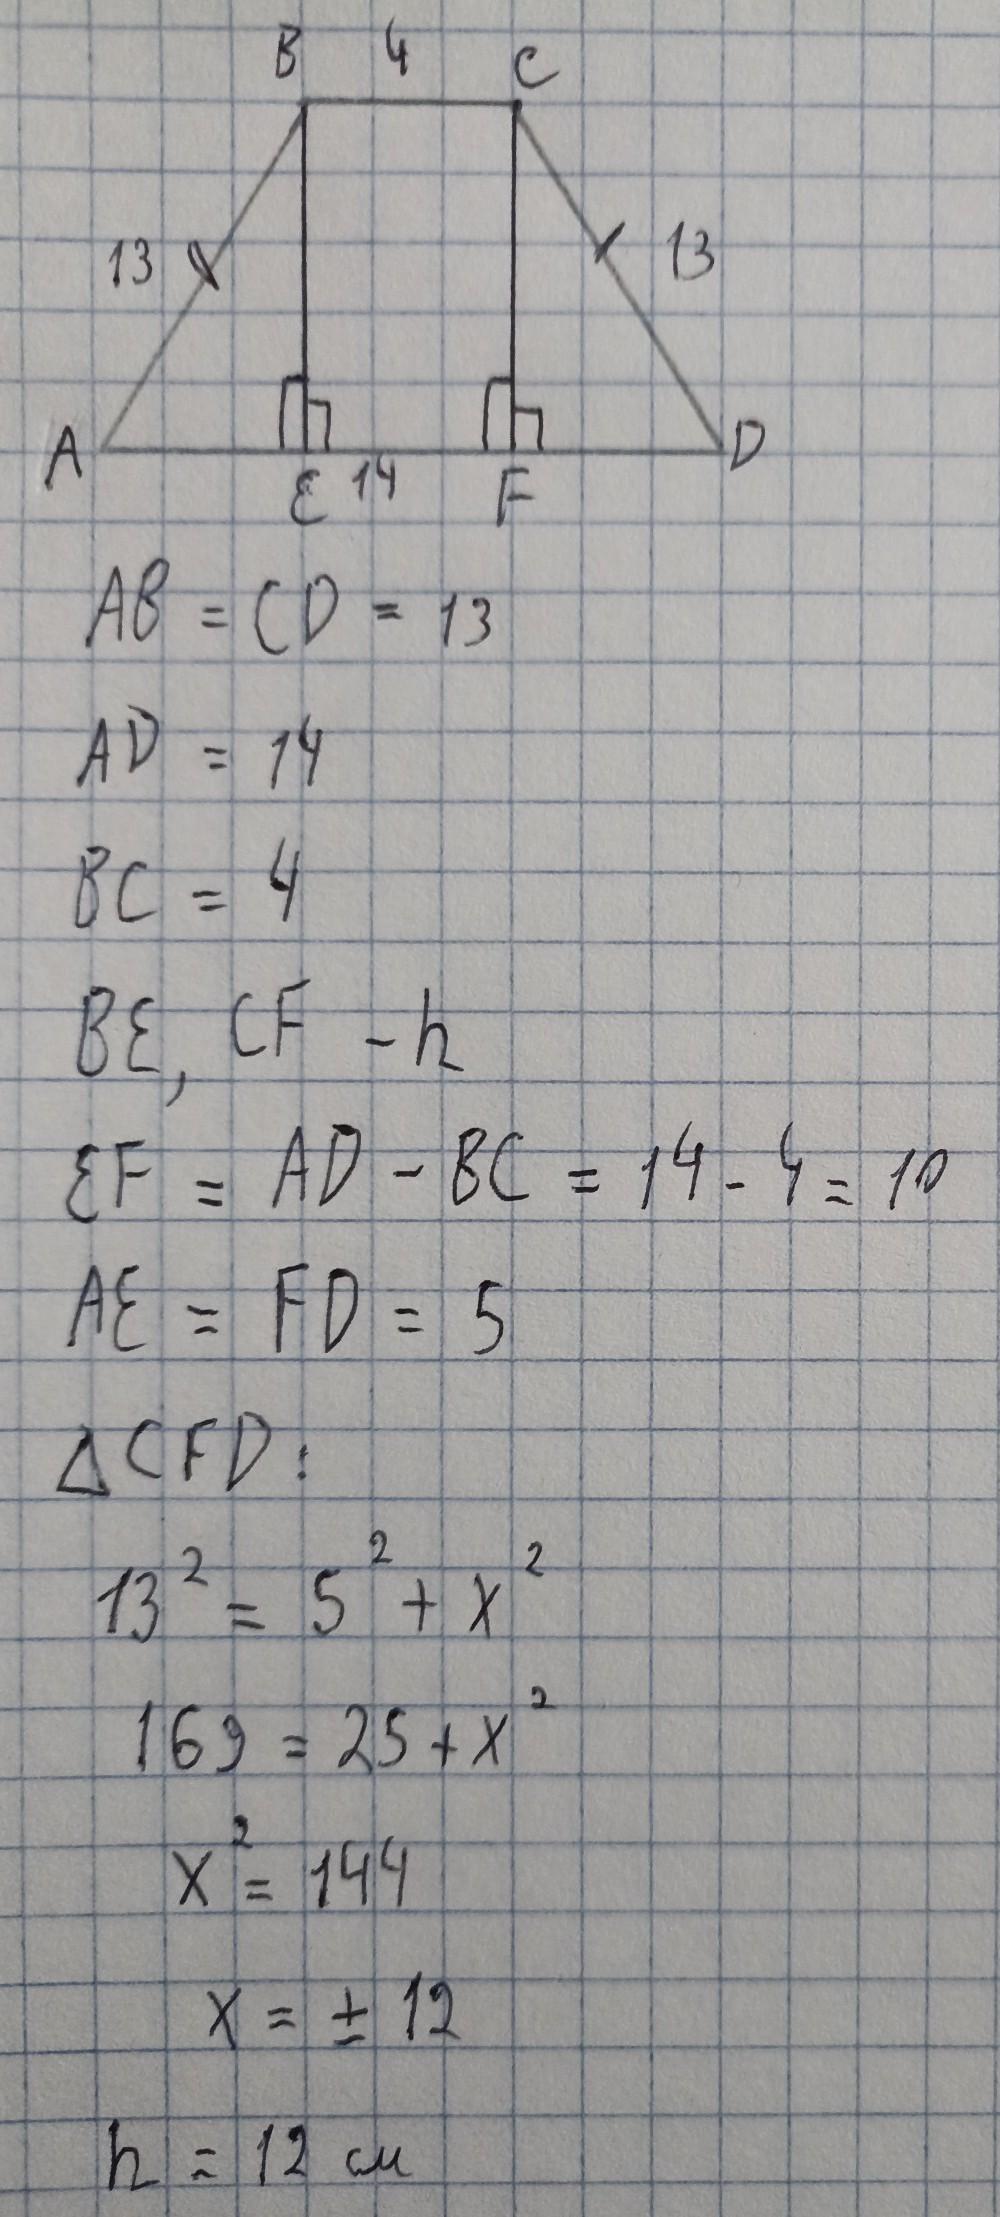 B 4 C
13 13
A E 14 F D
AB = CD = 13
AD = 14
BC = 4
BE, CF - h
EF = AD - BC = 14 - 4 = 10
AE = FD = 5
△CFD:
13² = 5² + x²
169 = 25 + x²
x² = 144
x = ± 12
h = 12 см